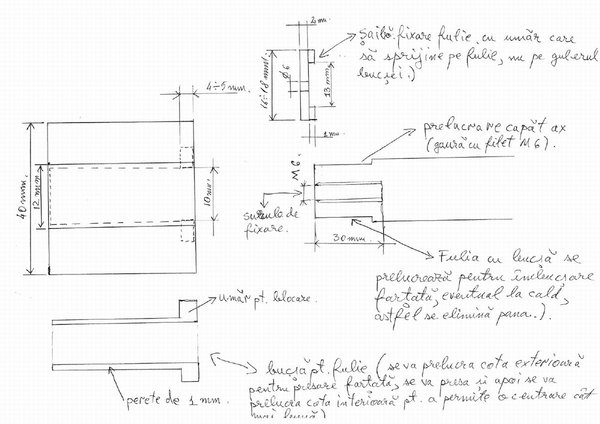 2 mm.
Șaibă fixare fulie cu umăr care
să sprijine pe fulie, nu pe gulerul
bucșei.)
16÷18 mm.
ϕ6
13 mm.
1 mm.
4÷5 mm.
prelucrare capăt ax
(gaură cu filet M6).
M6.
40 mm.
12 mm
10 mm.
șurub de
fixare.
30 mm.
Fulia cu bucșă se
prelucrează pentru îmbucșare
fartată, eventual la cald,
astfel se elimină pana.).
umăr pt. blocare.
bucșă pt. fulie (se va prelucra cota exterioară
pentru presare fartată, se va presa și apoi se va
prelucra cota interioară pt. a permite o centrare cât
mai bună)
perete de 1 mm.